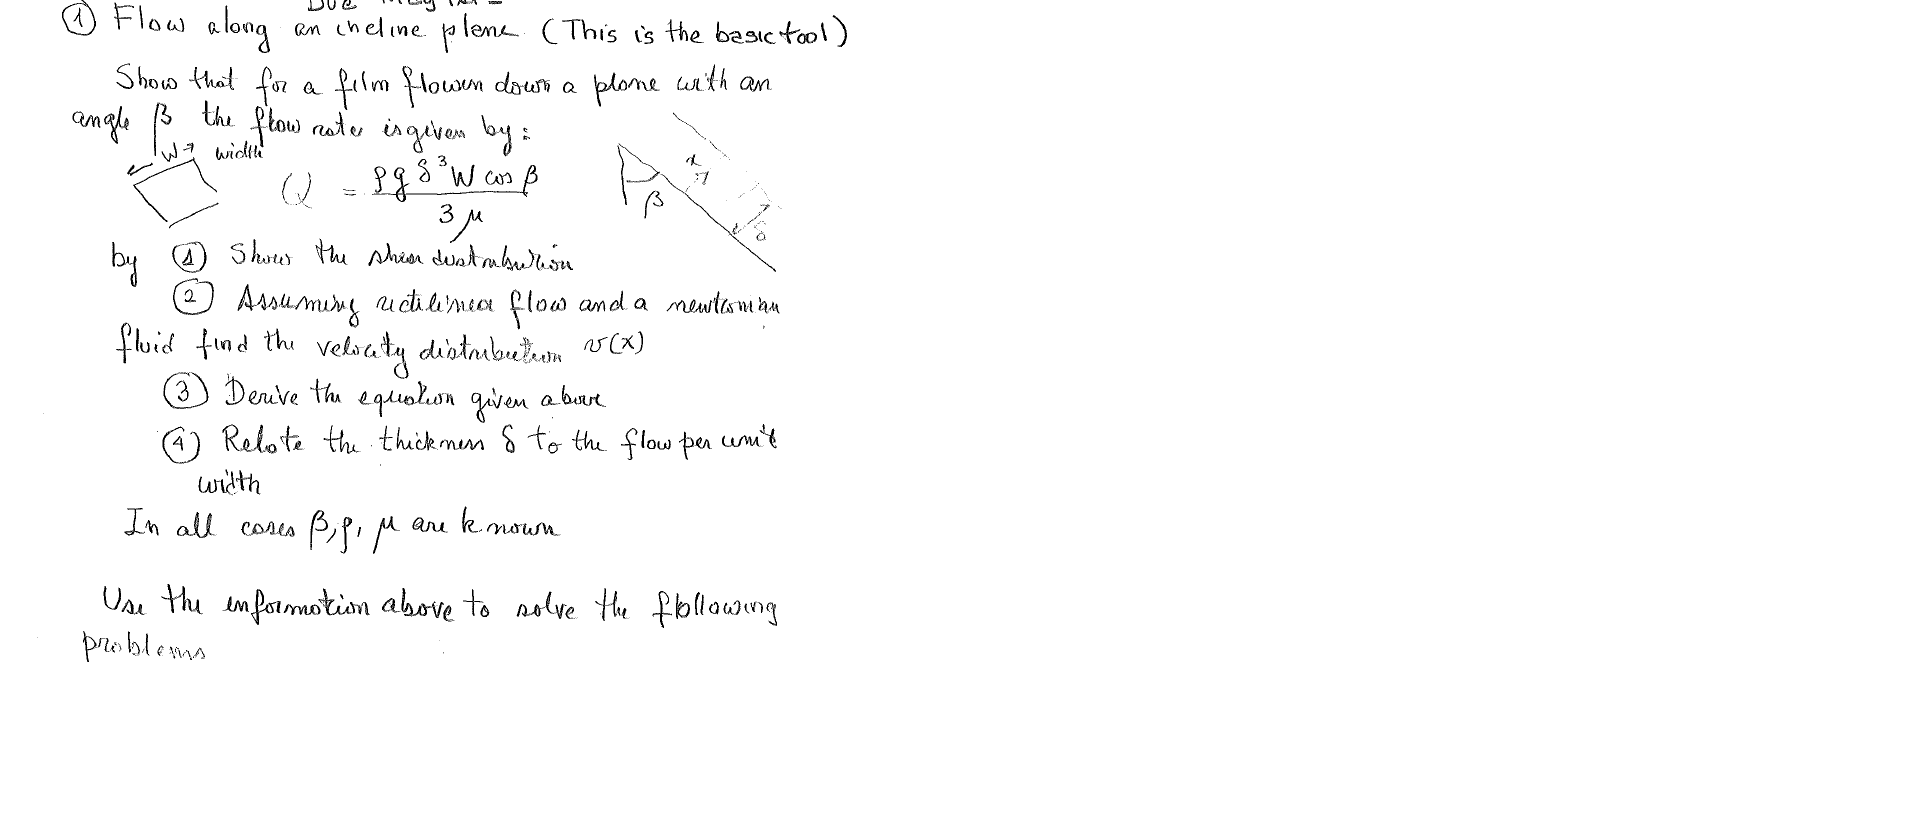 Due
① Flow along an incline plane (This is the basic tool)
Show that for a film flowen down a plane with an
angle β the flow rate is given by:
W → width
Q = ρ g δ³ W cos β / 3 μ
x
β
δ
by ① Show the shear distribution
② Assuming rectilinear flow and a newtonian
fluid find the velocity distribution v(x)
③ Derive the equation given above
④ Relate the thickness δ to the flow per unit
width
In all cases β, ρ, μ are known
Use the information above to solve the following
problems